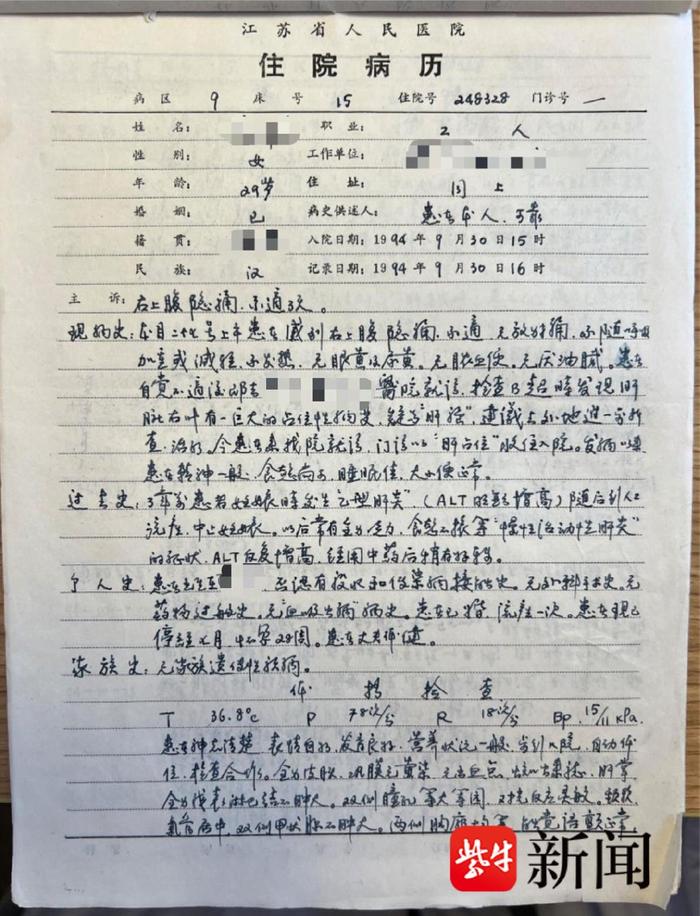 江苏省人民医院
住院病历
病区 9 床号 15 住院号 248328 门诊号 —
姓名： 职业： 工人
性别： 女 工作单位：
年龄： 29岁 住址： 同上
婚姻： 已 病史供述人： 患者本人、可靠
籍贯： 入院日期：1994年9月30日15时
民族： 汉 记录日期：1994年9月30日16时
主诉：右上腹隐痛，不适3天。
现病史：本月二十七号上午患者感到右上腹隐痛，不适，无放射痛，不随呼吸
加重或减轻，不发热，无眼黄及尿黄。无脓血便。无厌油腻。患者
自觉不适后即去 医院就诊，检查B超时发现肝
脏右叶有一巨大的占位性病变，疑为"肝癌"，建议去外地进一步检
查，治疗。今患者来我院就诊，门诊以"肝占位"收住入院。发病以来
患者精神一般，食欲尚可，睡眠佳，大小便正常。
过去史：3年前患者妊娠时发生"乙型肝炎"（ALT 增高）随后到人工
流产，中止妊娠。以后常有全身乏力，食欲不振等"慢性活动性肝炎"
的症状，ALT反复增高，经用中药后稍有好转。
个人史：患者出生于 否认有疫水和传染病接触史。无外科手术史。无
药物过敏史。无血吸虫病病史。患者已婚，流产一次。患者现已
停经七月，怀孕28周。患者丈夫体健。
家族史：无家族遗传性疾病。
体格检查
T 36.8℃ P 78次/分 R 18次/分 Bp 15/11 kPa.
患者神志清楚，表情自如，发育良好，营养状况一般，步行入院，自动体
位，检查合作。全身皮肤，巩膜无黄染，无出血点， 肝掌
全身浅表淋巴结不肿大。双侧瞳孔等大等圆，对光反应灵敏。颈软
气管居中，双侧甲状腺不肿大。两侧胸廓均等，触觉语颤正常
紫牛新闻